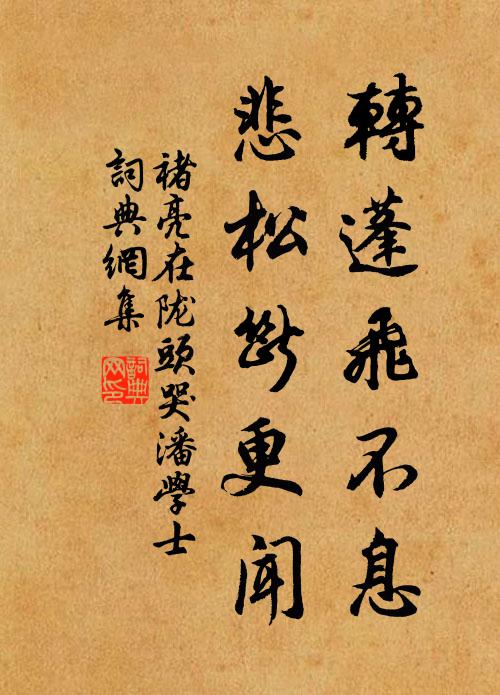 轉蓬飛不息
悲松斷更闻
褚亮在陇頭哭潘學士
詞典網集
詞典
网印